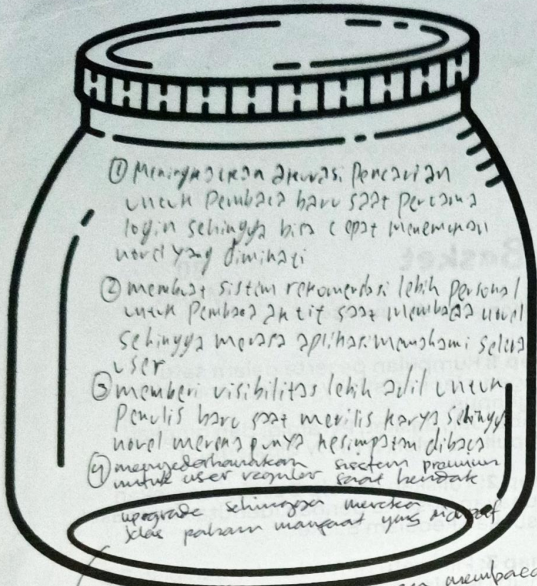 ① Meningkatkan akurasi Pencarian
untuk Pembaca baru saat pertama
login sehingga bisa cepat menemukan
novel yang diminati
② membuat sistem rekomendasi lebih Personal
untuk Pembaca aktif saat membaca novel
sehingga merasa aplikasi memahami selera
user
③ memberi visibilitas lebih adil untuk
Penulis baru saat merilis karya sehingga
novel mereka punya kesempatan dibaca
④ menyederhanakan sistem premium
untuk user reguler saat hendak
upgrade sehingga mereka
jelas paham manfaat yang didapat
Basket